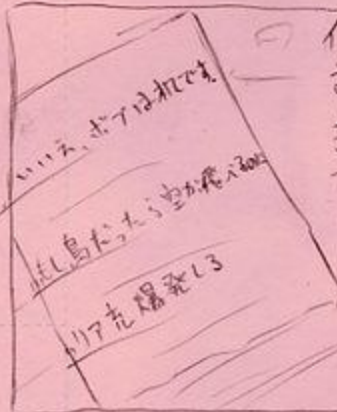 いいえ、ボブはれてです。
もし鳥だったら空が飛べるのに
リア充爆発しろ